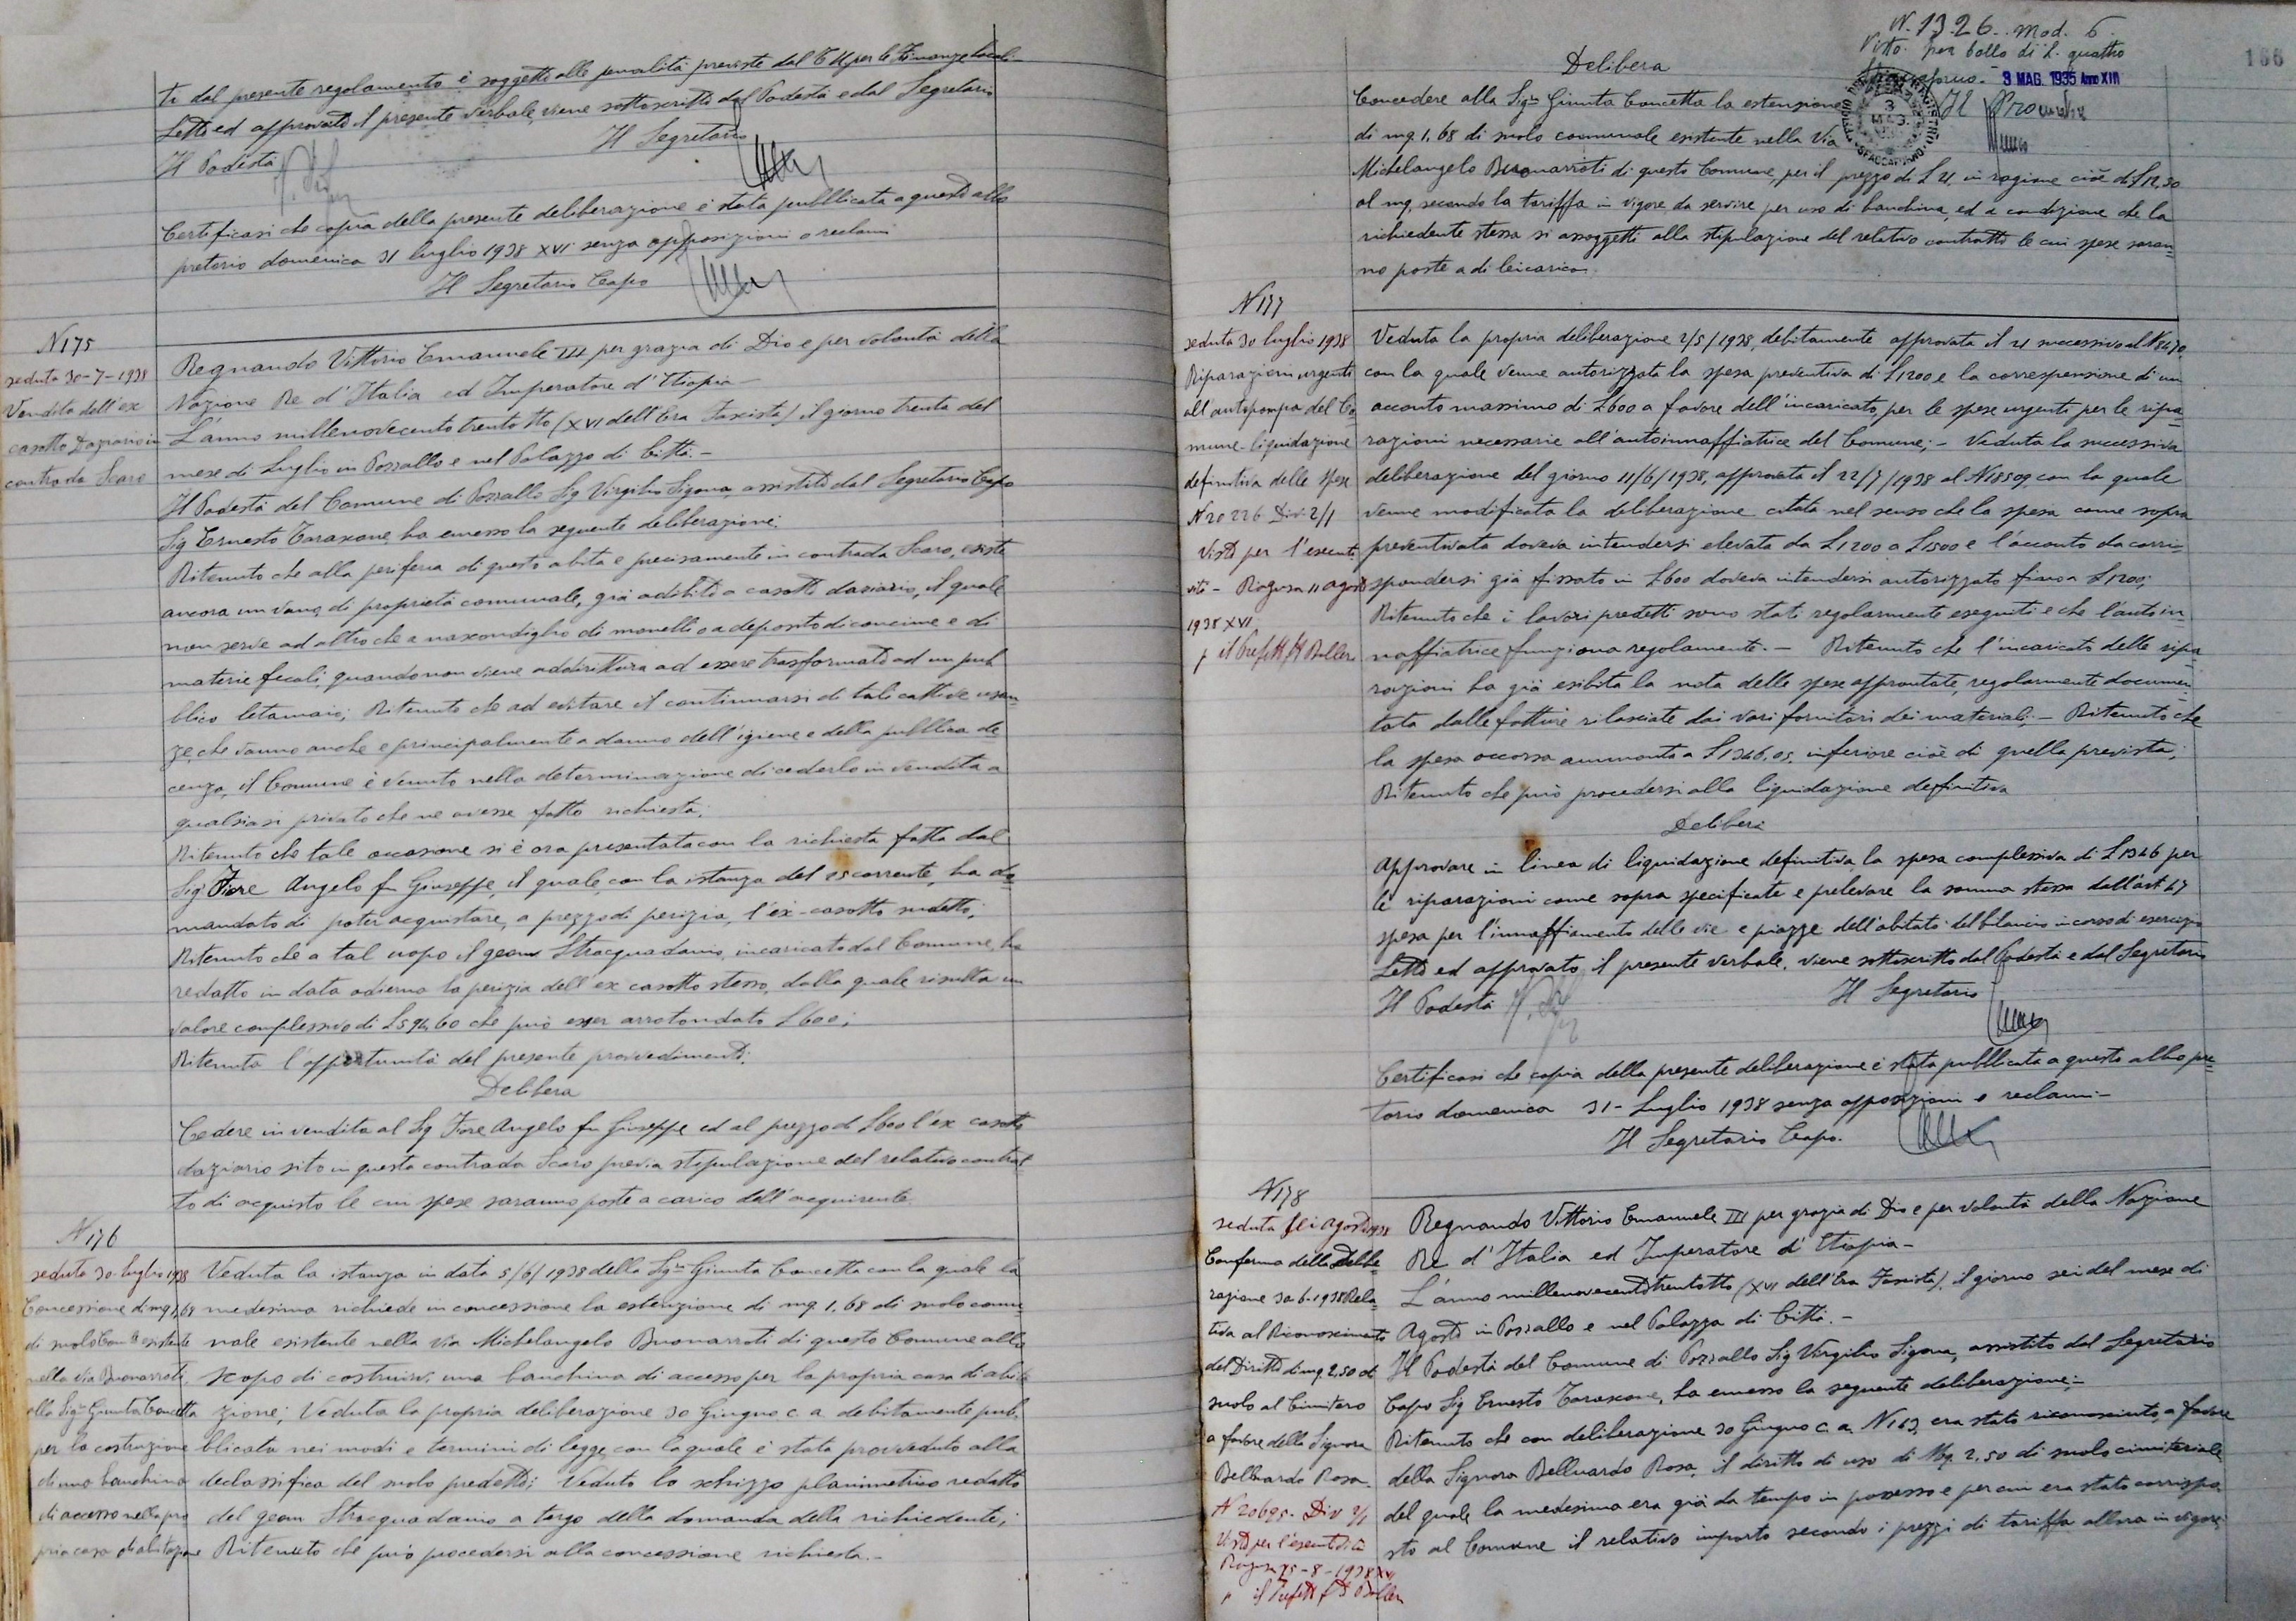 ti dal presente regolamento è soggetto alle penalità previste dal T U per le Finanze locali
Letto ed approvato il presente verbale, viene sottoscritto dal Podestà e dal Segretario
Il Podestà
Il Segretario
Certificasi che copia della presente deliberazione è stata pubblicata a questo albo
pretorio domenica 31 luglio 1938 XVI senza opposizioni o reclami
Il Segretario Capo
N 175
seduta 30-7-1938
Vendita dell'ex
casotto Daziario in
contrada Scaro
Regnando Vittorio Emanuele III per grazia di Dio e per volontà della
Nazione Re d'Italia ed Imperatore d'Etiopia -
L'anno millenovecentotrentotto (XVI dell'Era Fascista) il giorno trenta del
mese di Luglio in Pozzallo e nel Palazzo di Città. -
Il Podestà del Comune di Pozzallo Sig Virgilio Sigona, assistito dal Segretario Capo
Sig Ernesto Tarascone, ha emesso la seguente deliberazione;
Ritenuto che alla periferia di questo abitato e precisamente in contrada Scaro, esiste
ancora un vano, di proprietà comunale, già adibito a casotto daziario, il quale
non serve ad altro che a nascondiglio di monelli o a deposito di concime e di
materie fecali, quando non viene addirittura ad essere trasformato ad un pub
blico letamaio; Ritenuto che ad evitare il continuarsi di tali cattive usan-
ze, che vanno anche e principalmente a danno dell'igiene e della pubblica de
cenza, il Comune è venuto nella determinazione di cederlo in vendita a
qualsiasi privato che ne avesse fatto richiesta;
Ritenuto che tale occasione si è ora presentata con la richiesta fatta dal
Sig. Fiore Angelo fu Giuseppe, il quale, con la istanza del 25 corrente, ha do
mandato di poter acquistare, a prezzo di perizia, l'ex-casotto sudetto;
Ritenuto che a tal uopo il geom Stracquadanio, incaricato dal Comune, ha
redatto in data odierna la perizia dell'ex casotto stesso, dalla quale risulta un
valore complessivo di L 594,60 che può esser arrotondato L 600;
Ritenuta l'opportunità del presente provvedimento;
Delibera
Cedere in vendita al Sig Fiore Angelo fu Giuseppe ed al prezzo di L 600 l'ex casotto
daziario sito in questa contrada Scaro previa stipulazione del relativo contrat
to di acquisto le cui spese saranno poste a carico dell'acquirente
N 176
seduta 30-luglio 1938
Concessione di mq 1,68
di suolo Com.le esistente
nella via Buonarroti
alla Sig.ra Giunta Concetta
per la costruzione
di una banchina
di accesso nella pro
pria casa di abitazione
Veduta la istanza in data 5/6/1938 della Sig.ra Giunta Concetta con la quale la
medesima richiede in concessione la estenzione di mq. 1,68 di suolo comu-
nale esistente nella Via Michelangelo Buonarroti di questo Comune allo
scopo di costruirvi una banchina di accesso per la propria casa di abita
zione; Veduta la propria deliberazione 30 Giugno c. a. debitamente pub
blicata nei modi e termini di legge, con la quale è stata provveduto alla
declassifica del suolo predetto; Veduto lo schizzo planimetrico redatto
del geom Stracquadanio a tergo della domanda della richiedente;
Ritenuto che può procedersi alla concessione richiesta.-
N. 1326. Mod. 6.
Visto per bollo di L. quattro
3 MAG. 1935 Anno XIII
166
3
MAG.
SPACCAFORNO
Delibera
Concedere alla Sig.ra Giunta Concetta la estensione
di mq. 1,68 di suolo comunale esistente nella Via
Michelangelo Buonarroti di questo Comune, per il prezzo di L 21, in ragione cioè di L 12,50
al mq, secondo la tariffa in vigore da servire per uso di banchina, ed a condizione che la
richiedente stessa si assoggetti alla stipulazione del relativo contratto le cui spese saran-
no poste a di lei carico.
N 177
seduta 30 luglio 1938
Riparazioni urgenti
all'autopompa del Co
mune - liquidazione
definitiva delle spese
N 20226 Div. 2/1
Visto per l'esecuti
vità - Ragusa 11 agosto
1938 XVI
p il Prefetto
Veduta la propria deliberazione 2/5/1938, debitamente approvata il 21 successivo al N 8470
con la quale venne autorizzata la spesa preventiva di L 1200 e la corresponsione di un
acconto massimo di L 600 a favore dell'incaricato, per le spese urgenti per le ripa-
razioni necessarie all'autoinnaffiatrice del Comune; - Veduta la successiva
deliberazione del giorno 11/6/1938, approvata il 22/7/1938 al N 18509, con la quale
venne modificata la deliberazione citata nel senso che la spesa come sopra
preventivata doveva intendersi elevata da L 1200 a L 1500 e l'acconto da corri-
spondersi già fissato in L 600 doveva intendersi autorizzato fino a L 1200;
Ritenuto che i lavori predetti sono stati regolarmente eseguiti e che l'autoin-
naffiatrice funziona regolamente. - Ritenuto che l'incaricato delle ripa-
razioni ha già esibita la nota delle spese affrontate, regolarmente documen-
tata dalle fatture rilasciate dai vari fornitori dei materiali; - Ritenuto che
la spesa occorsa ammonta a L 1346,05, inferiore cioè di quella prevista;
Ritenuto che può procedersi alla liquidazione definitiva
Delibera
Approvare in linea di liquidazione definitiva, la spesa complessiva di L 1346 per
le riparazioni come sopra specificate e prelevare la somma stessa dall'art 47
spesa per l'innaffiamento delle vie e piazze dell'abitato del bilancio in corso di esercizio
Letto ed approvato, il presente verbale, viene sottoscritto dal Podestà e dal Segretario
Il Podestà
Il Segretario
Certificasi che copia della presente deliberazione è stata pubblicata a questo albo pre-
torio domenica 31 - Luglio 1938 senza opposizioni o reclami -
Il Segretario Capo.
N 178
seduta sei agosto 1938
Conferma della Delibe-
razione 30-6-1938 Rela-
tiva al Riconoscimento
del Diritto di mq. 2,50 di
suolo al Cimitero
a favore della Signora
Belluardo Rosa.
N 20695. Div 2/1
Visto per l'esecutività
Ragusa 25-8-1938 XVI
p il Prefetto
Regnando Vittorio Emanuele III per grazia di Dio e per volontà della Nazione
Re d'Italia ed Imperatore d'Etiopia -
L'anno millenovecentotrentotto (XVI dell'Era Fascista), il giorno sei del mese di
Agosto in Pozzallo e nel Palazzo di Città. -
Il Podestà del Comune di Pozzallo Sig Virgilio Sigona, assistito dal Segretario
Capo Sig Ernesto Tarascone, ha emesso la seguente deliberazione; -
Ritenuto che con deliberazione 30 Giugno c. a. N 163, era stato riconosciuto, a favore
della Signora Belluardo Rosa, il diritto di uso di Mq. 2,50 di suolo cimiteriale
del quale la medesima era già da tempo in possesso e per cui era stato corrispo
sto al Comune il relativo importo secondo i prezzi di tariffa allora in vigore;